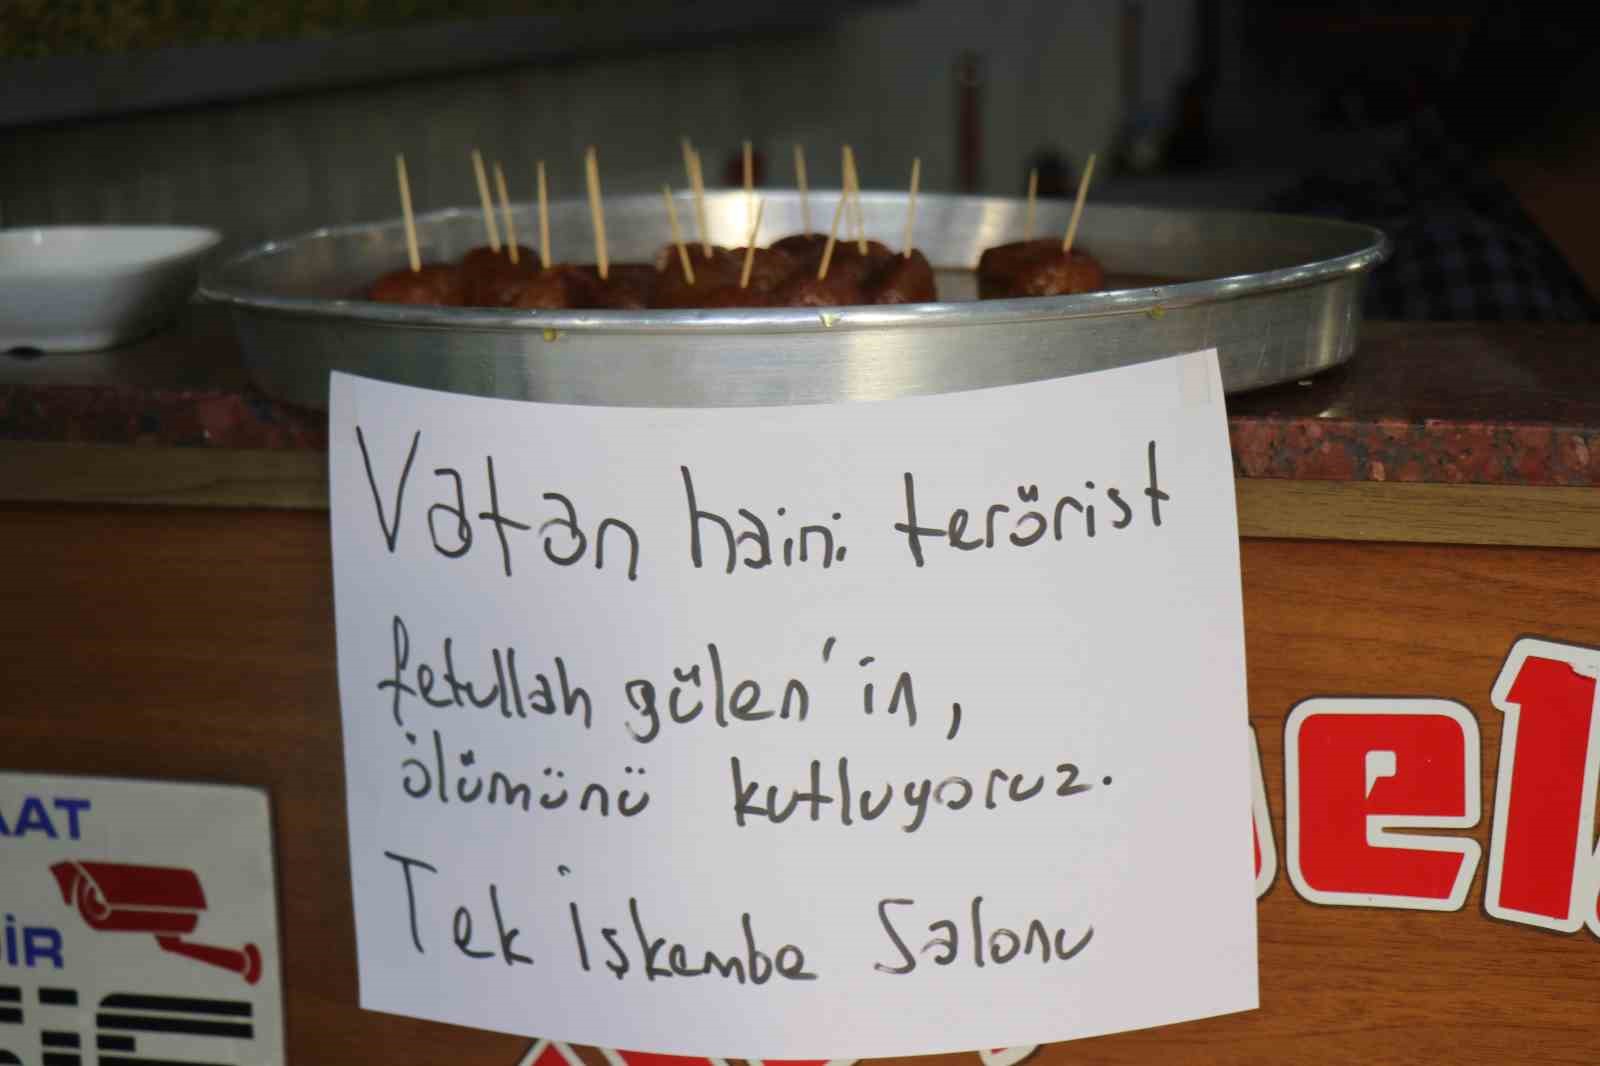 Vatan haini terörist
fetullah gülen'in,
ölümünü kutluyoruz.
Tek İşkembe Salonu
AAT
el